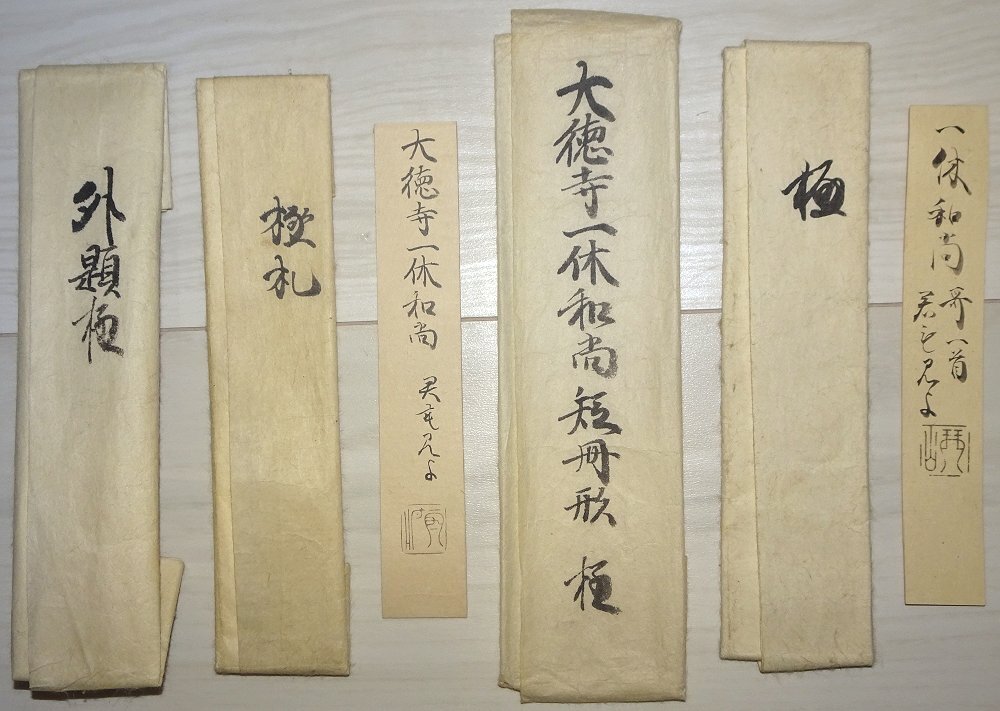 一休和尚 哥一首
極
大徳寺一休和尚短冊形 極
大徳寺一休和尚
極札
外題極